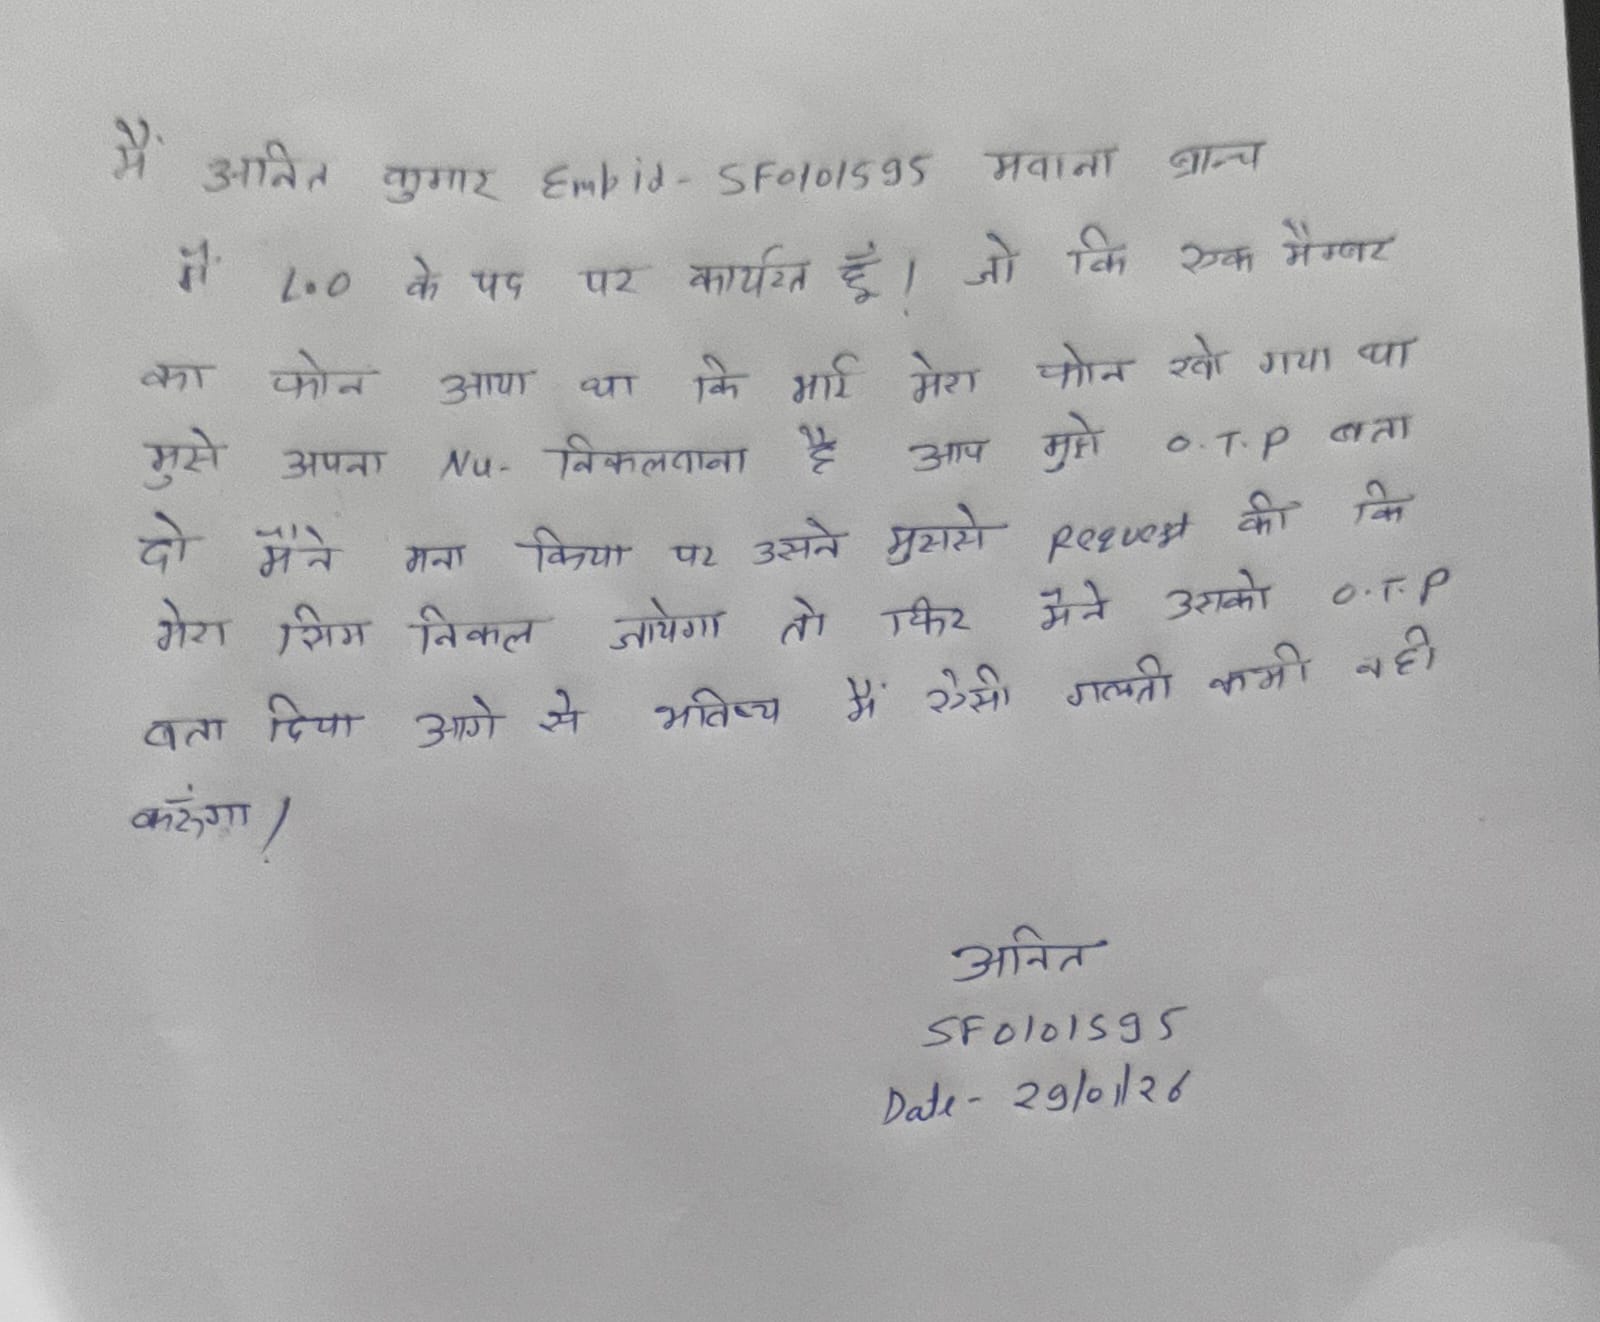 मैं अनित कुमार Emp id - SF0101595 मवाना ब्रान्च
में L.O के पद पर कार्यरत हूँ। जो कि एक मैम्बर
का फोन आया था कि भाई मेरा फोन खो गया था
मुझे अपना Nu- निकलवाना है आप मुझे O.T.P बता
दो मैंने मना किया पर उसने मुझसे Request की कि
मेरा सिम निकल जायेगा तो फिर मैंने उसको O.T.P
बता दिया आगे से भविष्य मैं ऐसी गलती कभी नही
करूंगा।
अनित
SF0101595
Date - 29/01/26